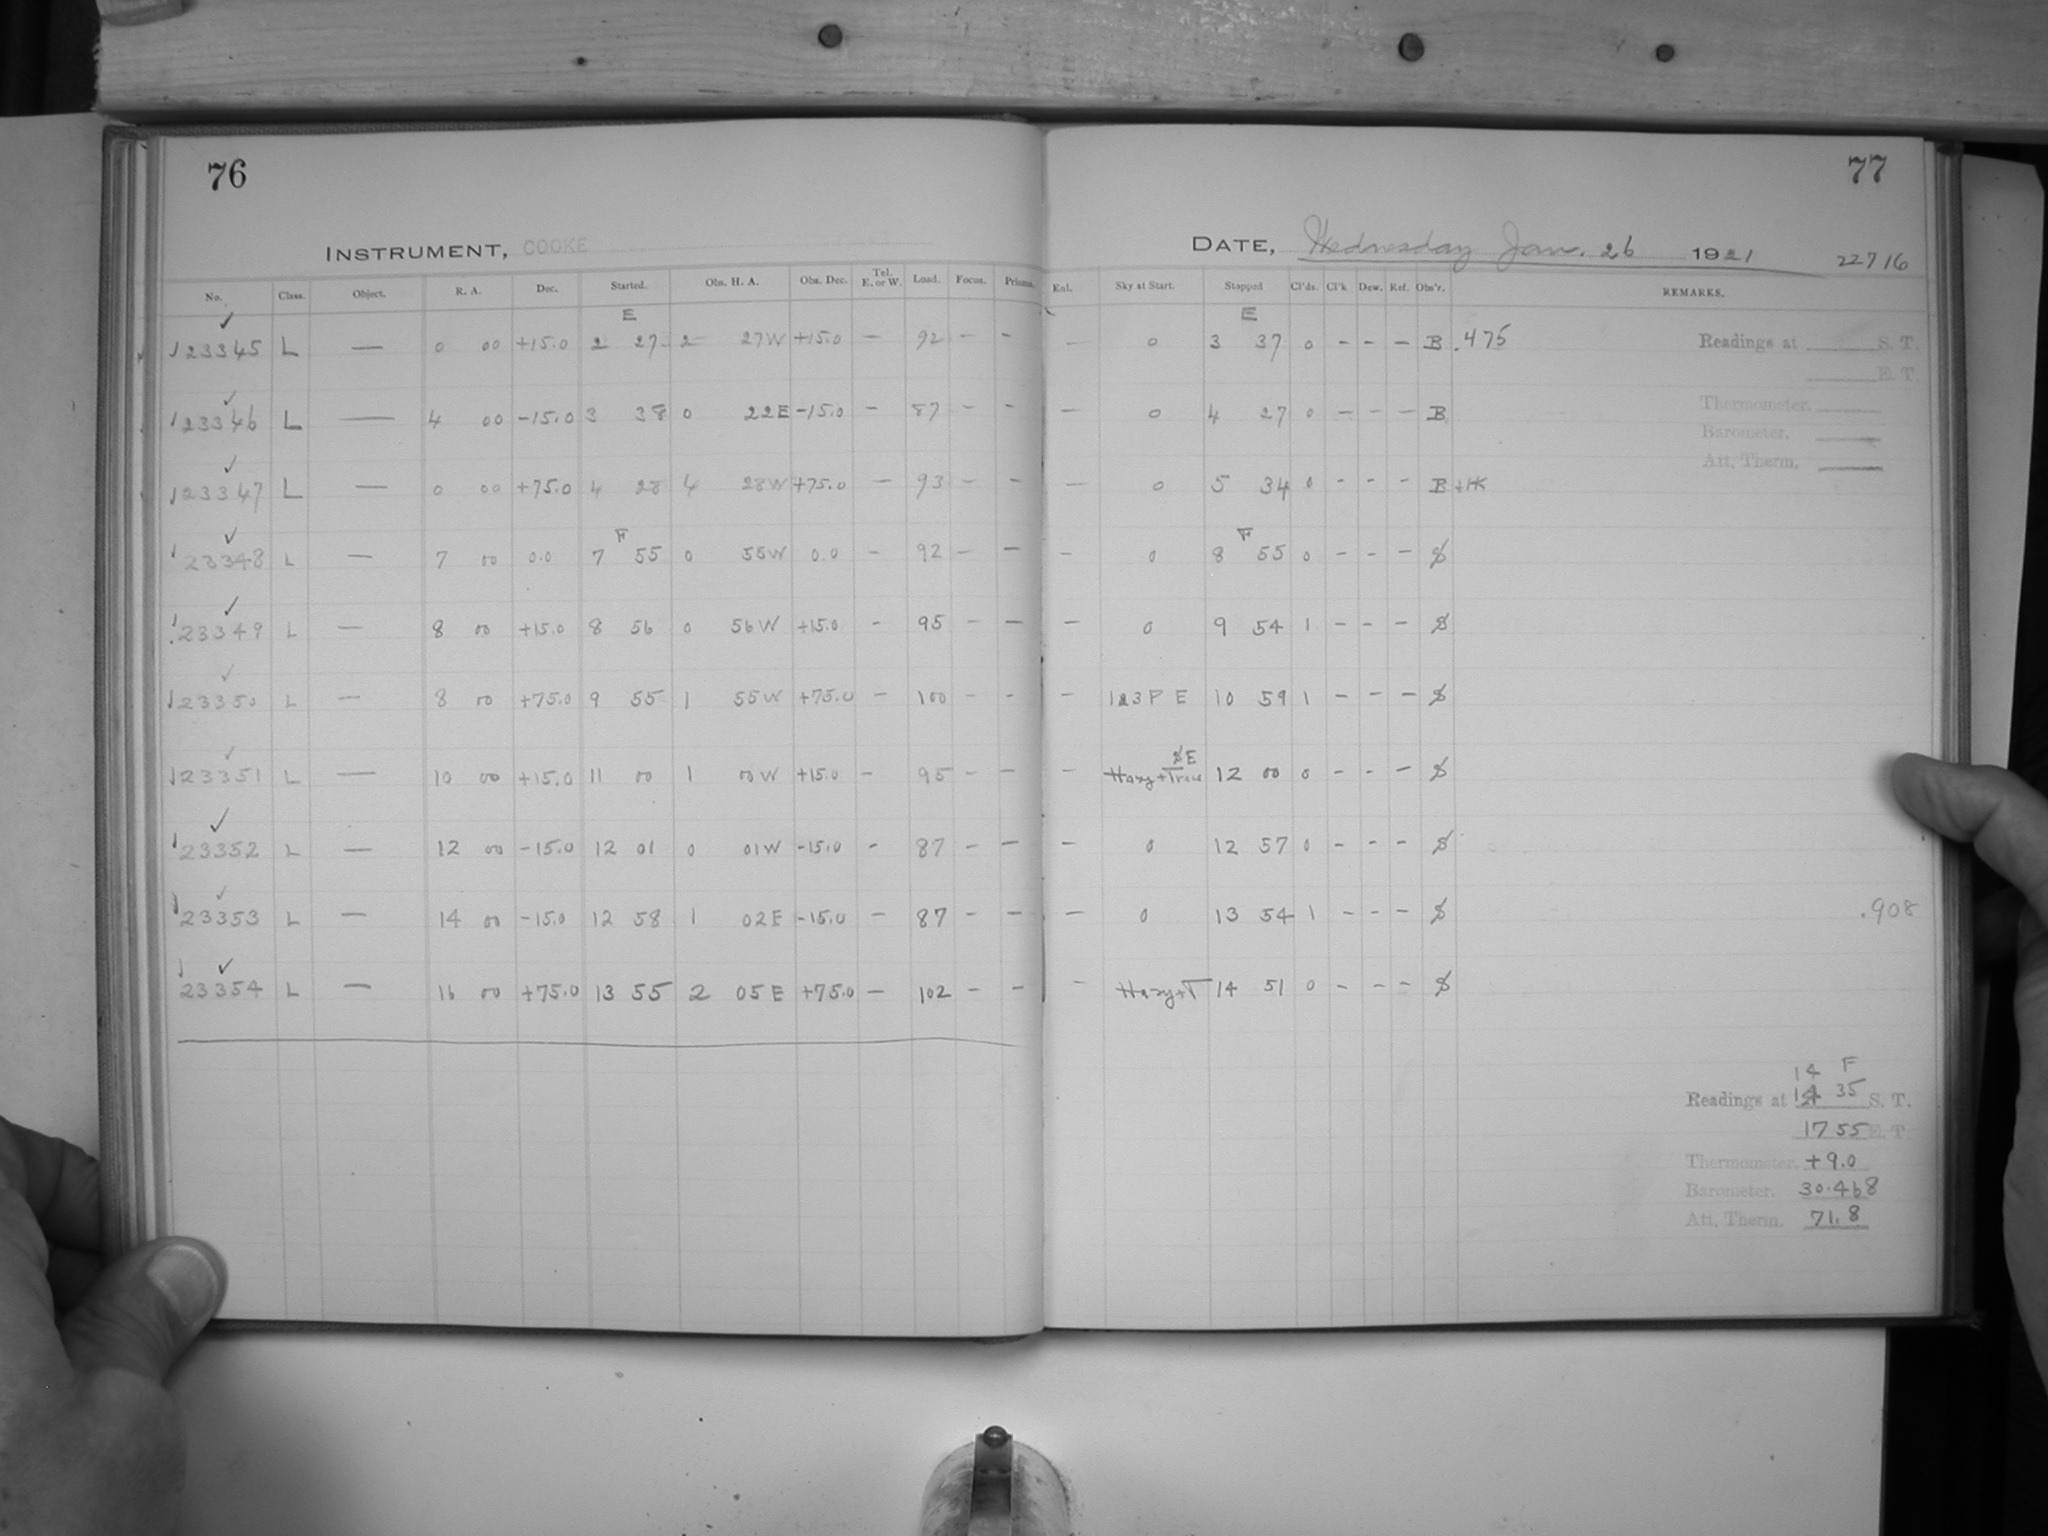 76
77
INSTRUMENT, COOKE
DATE, Wednesday Jan. 26 1921 22716
No. Class. Object. R. A. Dec. Started. Obs. H. A. Obs. Dec. Tel. E. or W. Load. Focus. Prisms. Enl. Sky at Start. Stopped Cl'ds. Cl'k Dew. Ref. Obs'r. REMARKS.
E E
23345 L — 0 00 +15.0 2 27 2 27W +15.0 — 92 - - - 0 3 37 0 - - - B .475 Readings at S. T.
E. T.
23346 L — 4 00 -15.0 3 38 0 22E -15.0 - 87 - - - 0 4 27 0 - - - B Thermometer,
Barometer,
Att. Therm.
23347 L — 0 00 +75.0 4 28 4 28W +75.0 - 93 - - - 0 5 34 0 - - - B +HK
F F
23348 L — 7 00 0.0 7 55 0 55W 0.0 - 92 - - - 0 8 55 0 - - - S
23349 L — 8 00 +15.0 8 56 0 56W +15.0 - 95 - - - 0 9 54 1 - - - S
23350 L — 8 00 +75.0 9 55 1 55W +75.0 - 100 - - - 123P E 10 59 1 - - - S
23351 L — 10 00 +15.0 11 00 1 00W +15.0 - 95 - - - Hazy + 12 00 0 - - - S
23352 L — 12 00 -15.0 12 01 0 01W -15.0 - 87 - - - 0 12 57 0 - - - S
23353 L — 14 00 -15.0 12 58 1 02E -15.0 - 87 - - - 0 13 54 1 - - - S .908
23354 L — 16 00 +75.0 13 55 2 05E +75.0 - 102 - - - Hazy+T 14 51 0 - - - S
14 F
Readings at 14 35 S. T.
17 55 E. T.
Thermometer, +9.0
Barometer. 30.468
Att. Therm. 71.8